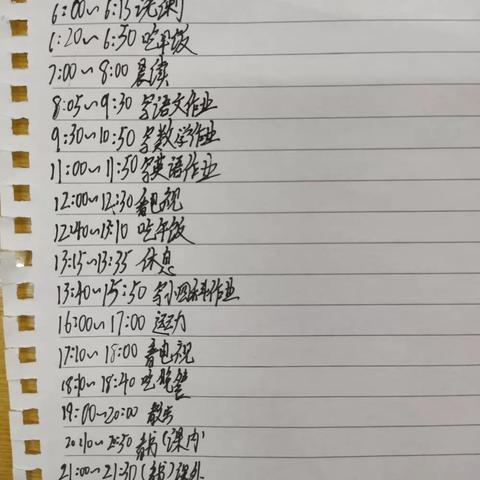 6:00~6:15 洗漱
6:20~6:50 吃早饭
7:00~8:00 晨读
8:05~9:30 写语文作业
9:30~10:50 写数学作业
11:00~11:50 写英语作业
12:00~12:30 看电视
12:40~13:10 吃午饭
13:15~13:35 休息
13:40~15:50 写小四科作业
16:00~17:00 运动
17:10~18:00 看电视
18:10~18:40 吃晚餐
19:00~20:00 散步
20:10~20:50 看书(课内)
21:00~21:30(看书)课外